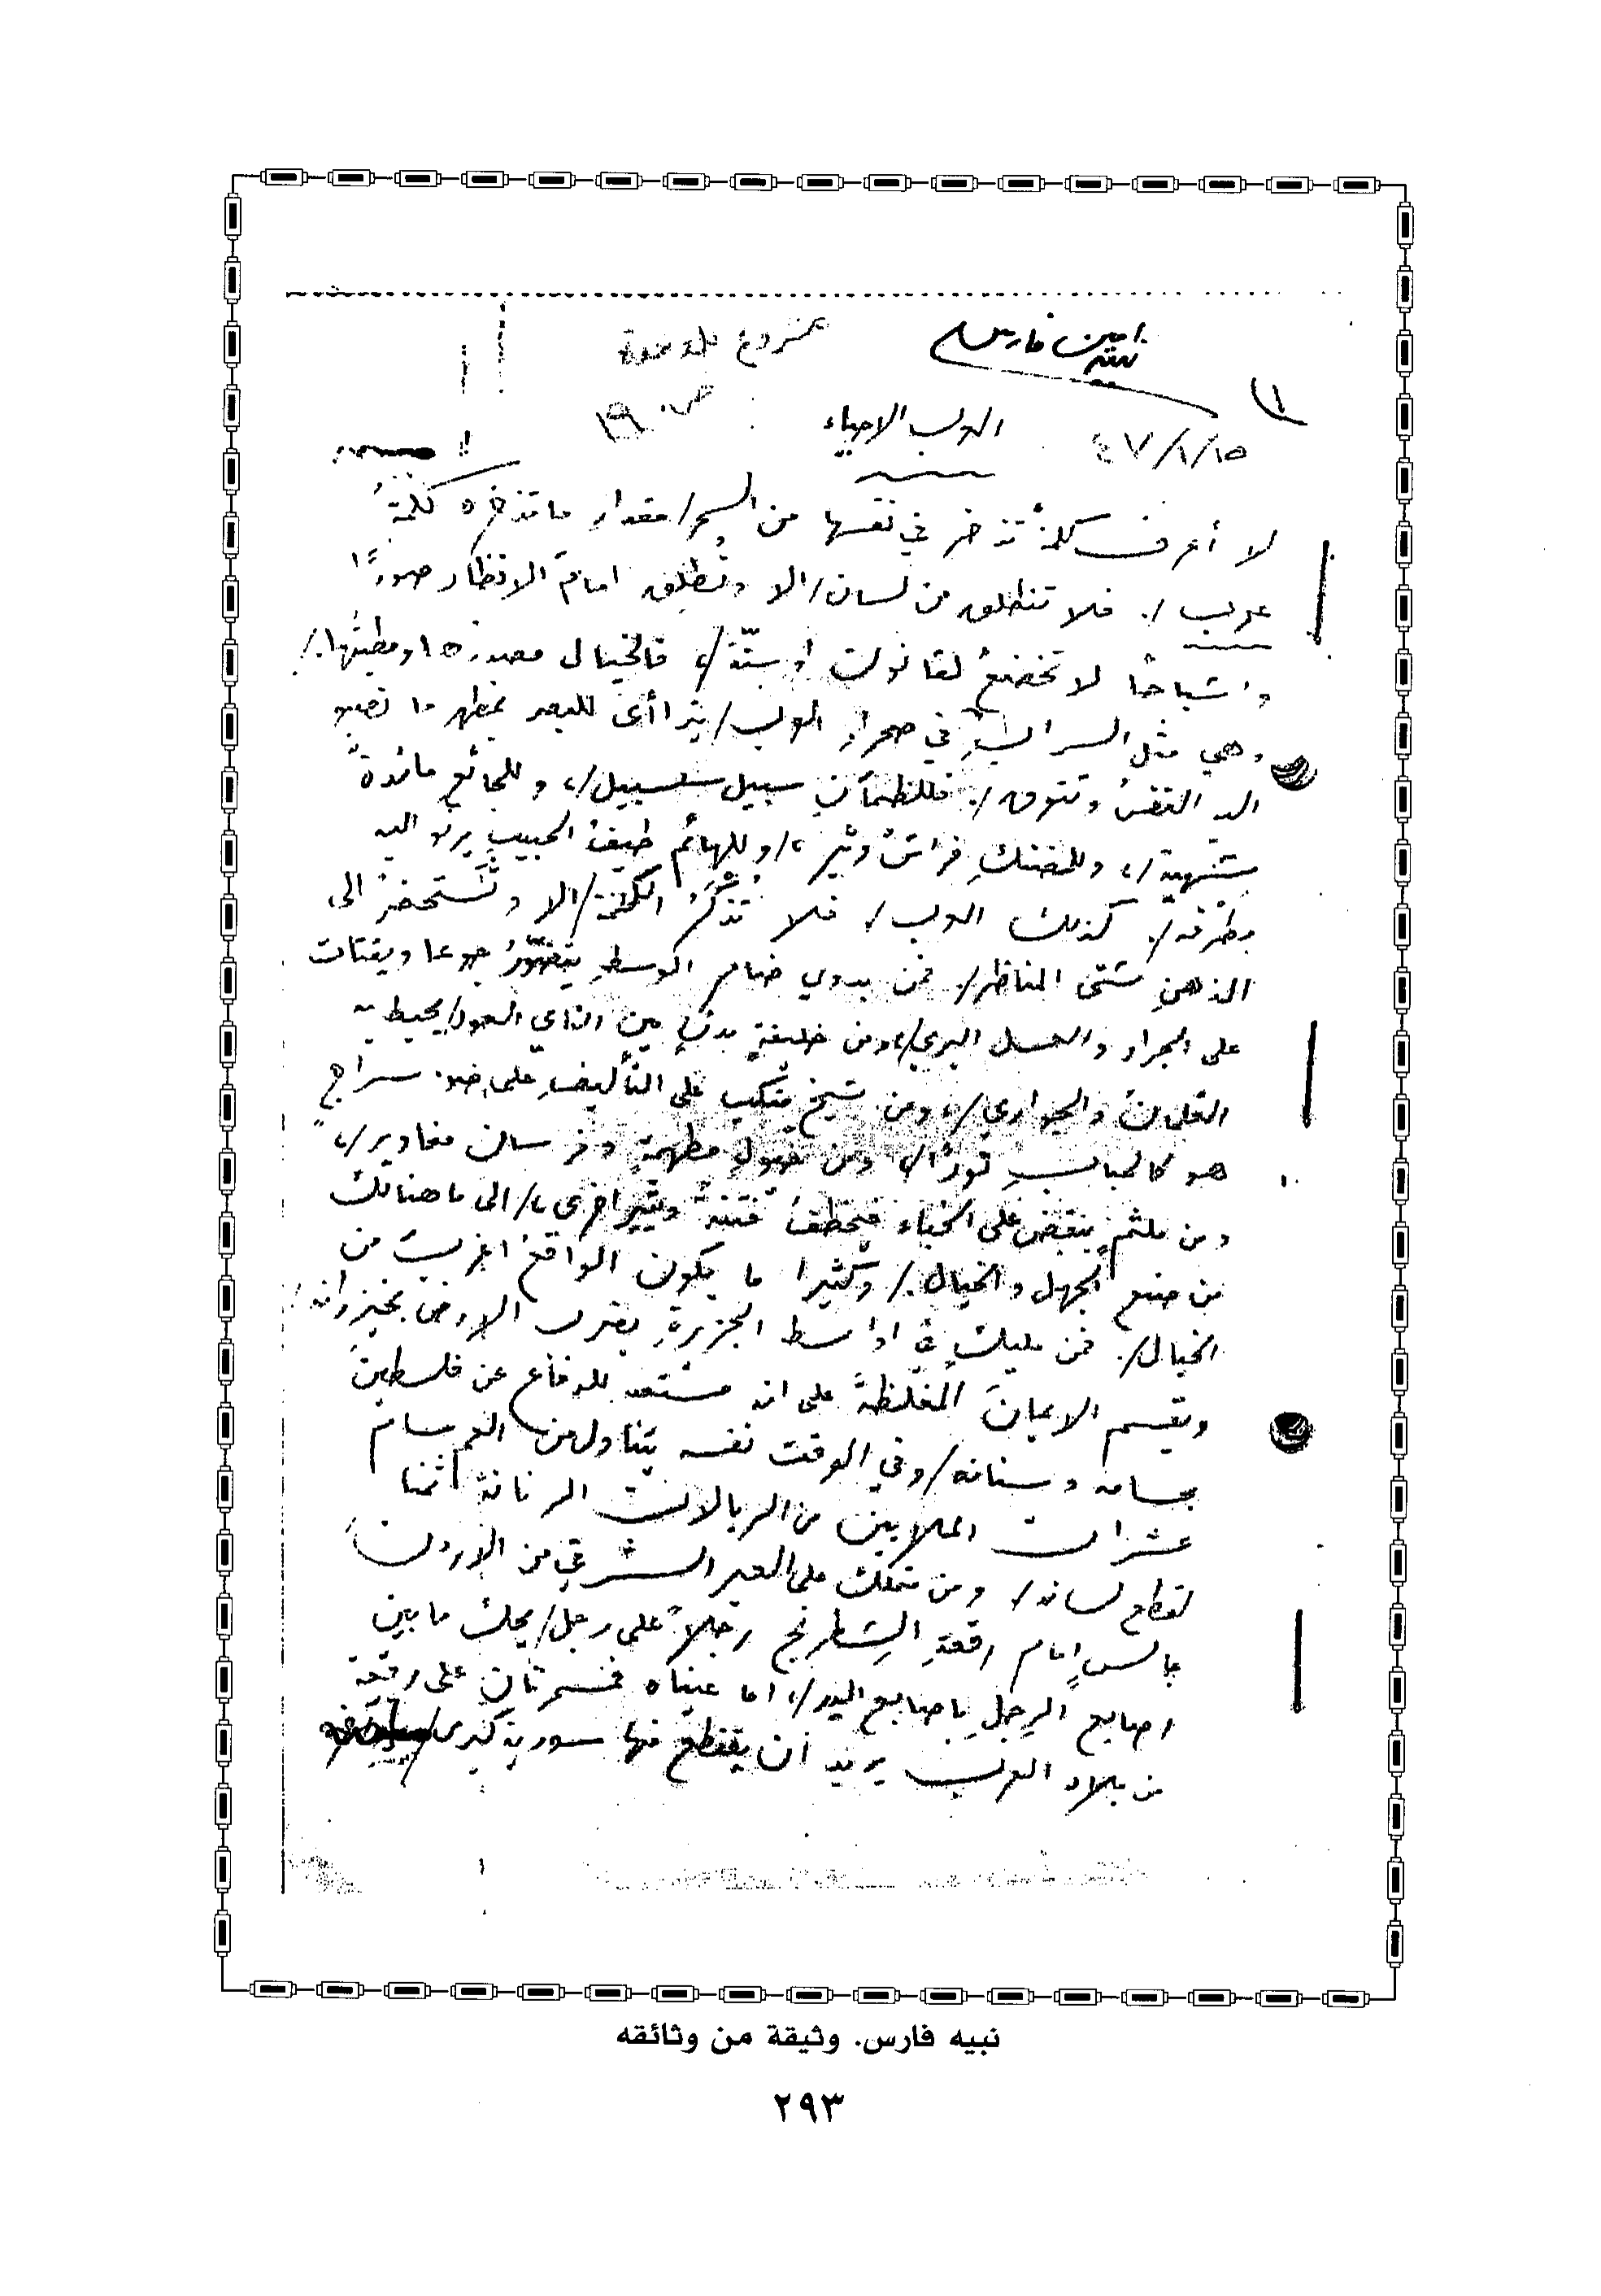 امين فارس
نبيه
العرب الاحياء
٤٧/١/١٥
لا أعرف كلمةً تذخر في نفسها من السحر/ مقدار ما تذخره كلمةُ
عرب/. فلا تنطلق من لسان/ الا وتُطلِق امامَ الانظار صورًا
واشباحًا لا تخضعُ لقانون او سنّة/، فالخيال مصدرها ومطيتُها/.
وهي مثل السراب في صحراءِ العرب/ يتراأى للبصر بمظهر ما تصبو
اليه النفسُ وتتوق/. فللظمآنِ سبيل سلسبيل/، وللجائع مائدةً
شهية/، وللمضنكِ فراشٌ وثير/، وللهائم طيفُ الحبيبِ يرنو اليه
بطرفه/. كذلك العرب/، فلا تُذكَرُ الكلمةُ/ الا وتُستحضرُ الى
الذهنِ شتى المناظر/. فمن بدوي ضامر الوسطِ يتضوّرُ جوعا ويقتات
على الجراد والعسل البري/، ومن خليفةٍ بدينٍ بين الناي والعود/ يحيط به
الغلمانُ والجواري/، ومن شيخٍ ينكب على التأليفِ على ضوء سراجٍ
هو كالحباحبِ نورًا/، ومن خيولٍ مطهمةٍ وفرسان مغاوير/،
ومن ملثمٍ ينقض على الخباء فيخطفُ فتنةً ويثير اخرى/، الى ما هنالك
من صنع الجهل والخيال/. وكثيرا ما يكون الواقعُ اغربَ من
الخيال/. فمن مليكٍ في اواسط الجزيرةِ يضرب الارضَ بخيزرانه/
ويقسم الايمانَ المغلظةَ على انه مستعد للدفاع عن فلسطين
بحسامه وسنانه/ وفي الوقت نفسه يتناول من العم سام
عشرات الملايين من الريالات الرنانة اثمنا
لقطع لسانه/، ومن متملك على العبر الشرقي من الاردن
جالسٍ امام رقعةِ الشطرنج رجلاً على رجل/ يحك ما بين
اصابع الرجلِ باصابع اليد/، اما عيناه فتسمرتان على رقعة
من بلاد العرب يريد ان يقتطع منها سورية كبرى/
نبيه فارس. وثيقة من وثائقه
٢٩٣